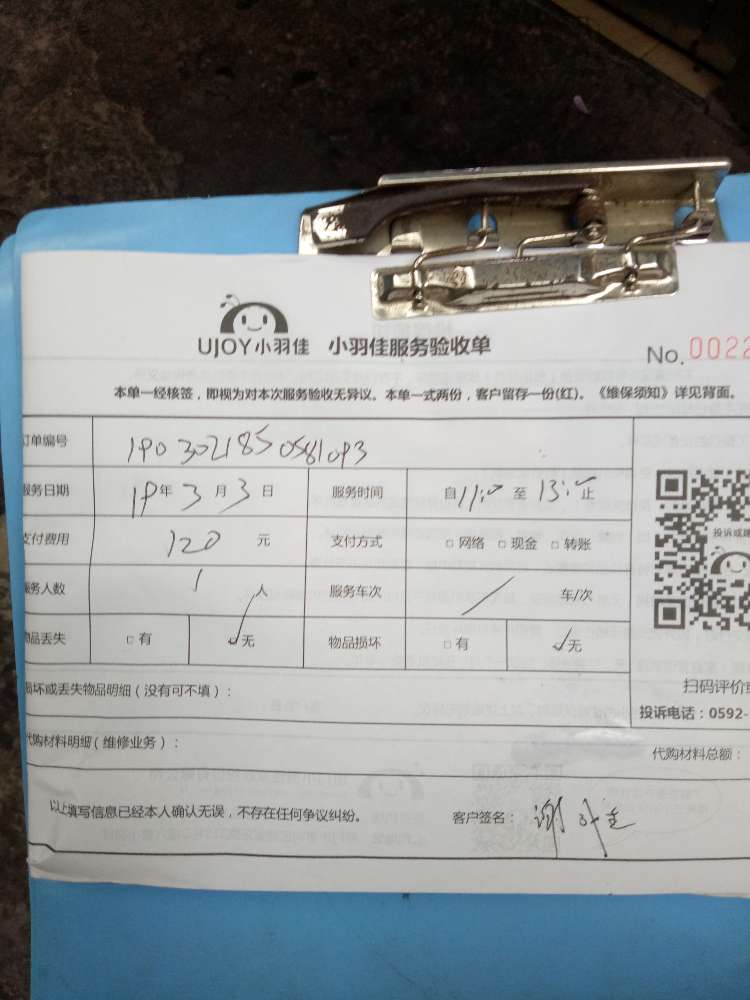 UJOY小羽佳 小羽佳服务验收单
No. 0022
本单一经核签，即视为对本次服务验收无异议。本单一式两份，客户留存一份(红)。《维保须知》详见背面。
订单编号 1903021850581093
服务日期 19年3月3日 服务时间 自11:00至13:00止
支付费用 120 元 支付方式 □网络 □现金 □转账
服务人数 1 人 服务车次 / 车/次
物品丢失 □有 ☑无 物品损坏 □有 ☑无
投诉或建
扫码评价
损坏或丢失物品明细（没有可不填）：
投诉电话：0592-
代购材料明细（维修业务）：
代购材料总额：
以上填写信息已经本人确认无误，不存在任何争议纠纷。 客户签名： 谢